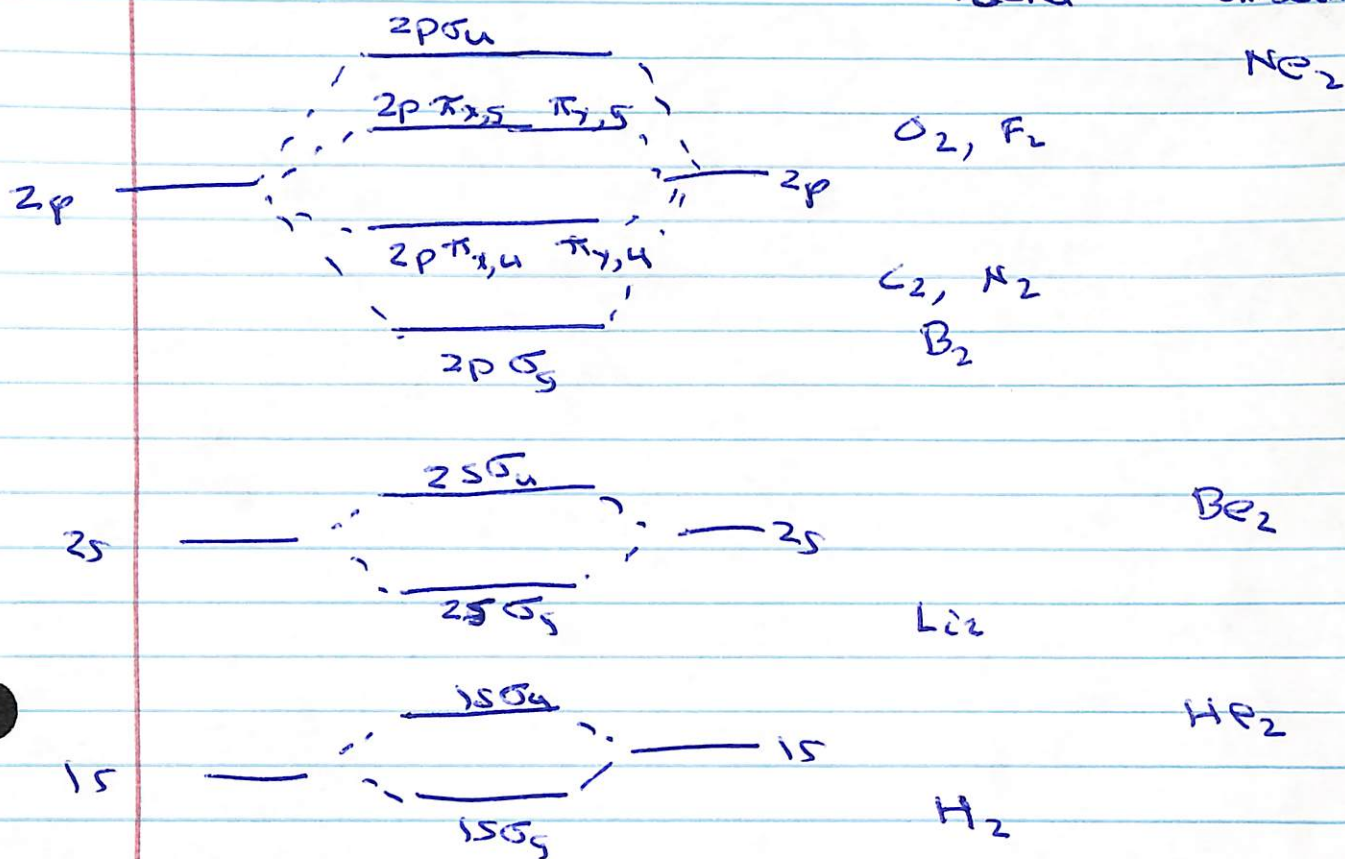 2pσu
Ne2
2p πx,g πy,g
O2, F2
2p 2p
2p πx,u πy,u
C2, N2
B2
2p σg
2s σu
Be2
2s 2s
2s σg
Li2
1s σu
He2
1s 1s
H2
1s σg